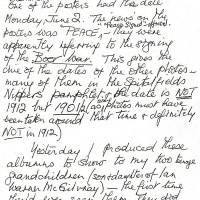 One of the posters had the date
Monday, June 2. The news on the
"Peace Signed - Official"
posters was PEACE, - They were
apparently referring to the signing
of the Boer War. This gives the
clue of the dates of the other photos -
many of them in the Spitalfields
Nippers pamphlet, the date is NOT
1912 but 1901/2 (all photos must have
been taken around that time & definitely
NOT in 1912)
Yesterday I produced these
albums to show to my two teenage
grandchildren (son & daughter of Ian
Warner McGilvray) - the first time
they'd ever seen them. They did